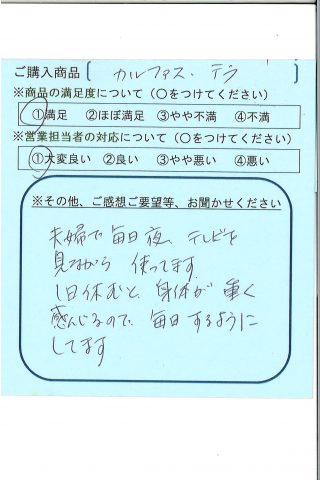 ご購入商品 [ カルファス・テラ ]
※商品の満足度について（〇をつけてください）
①満足 ②ほぼ満足 ③やや不満 ④不満
※営業担当者の対応について（〇をつけてください）
①大変良い ②良い ③やや悪い ④悪い
※その他、ご感想ご要望等、お聞かせください
夫婦で毎日夜、テレビを
見ながら 使ってます
1日休むと、身体が 重く
感んじるので、毎日するように
してます